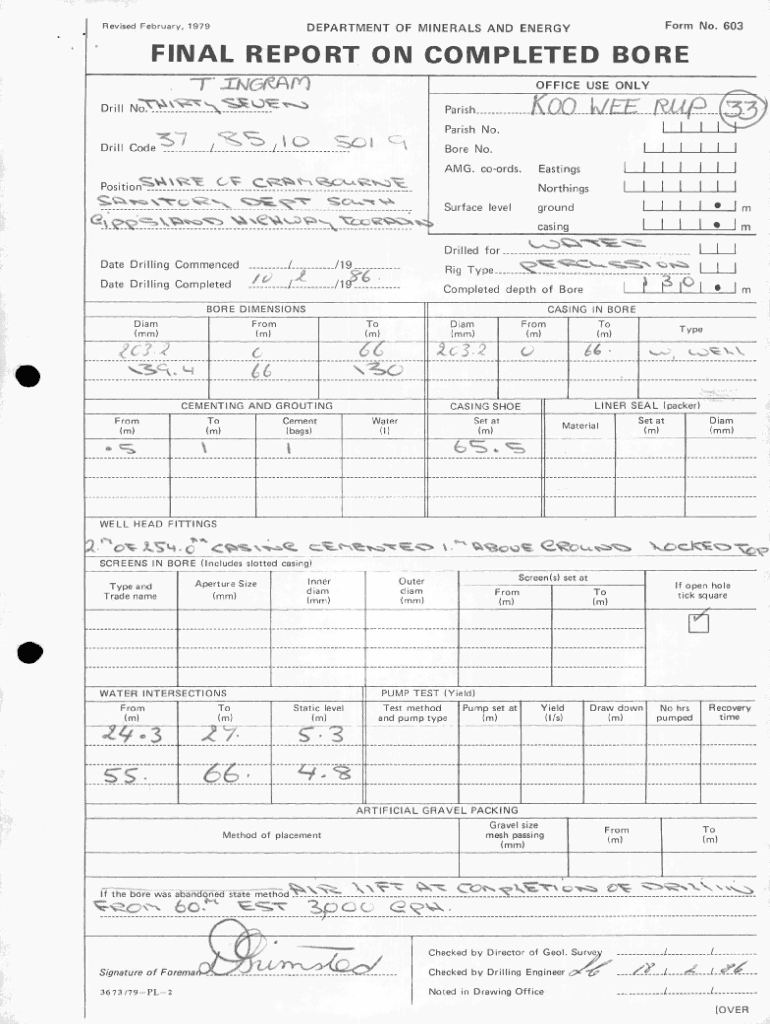 Revised February, 1979 DEPARTMENT OF MINERALS AND ENERGY Form No. 603
FINAL REPORT ON COMPLETED BORE
T INGRAM
Drill No. THIRTY SEVEN
Drill Code 37 / 85 / 10 5019
Position SHIRE OF CRAMBOURNE
SANITORY DEPT SOUTH
GIPPSLAND HIGHWAY TOORADIN
Date Drilling Commenced / /19
Date Drilling Completed 10 / 2 /1986.
OFFICE USE ONLY
Parish KOO WEE RUP 33
Parish No.
Bore No.
AMG. co-ords. Eastings
Northings
Surface level ground m
casing m
Drilled for WATER
Rig Type PERCUSSION
Completed depth of Bore 130. m
BORE DIMENSIONS CASING IN BORE
Diam (mm) From (m) To (m) Diam (mm) From (m) To (m) Type
203.2 0 66 203.2 0 66. W. WELL
139.4 66 130
CEMENTING AND GROUTING CASING SHOE LINER SEAL (packer)
From (m) To (m) Cement (bags) Water (l) Set at (m) Material Set at (m) Diam (mm)
.5 1 1 65.5
WELL HEAD FITTINGS
2.m OF 254.0mm CASING CEMENTED 1.m ABOVE GROUND LOCKED TOP
SCREENS IN BORE (Includes slotted casing)
Type and Trade name Aperture Size (mm) Inner diam (mm) Outer diam (mm) Screen(s) set at From (m) To (m) If open hole tick square
✓
WATER INTERSECTIONS PUMP TEST (Yield)
From (m) To (m) Static level (m) Test method and pump type Pump set at (m) Yield (l/s) Draw down (m) No hrs pumped Recovery time
24.3 27. 5.3
55. 66. 4.8
ARTIFICIAL GRAVEL PACKING
Method of placement Gravel size mesh passing (mm) From (m) To (m)
If the bore was abandoned state method AIR LIFT AT COMPLETION OF DRILLIN
FROM 60.M EST 3,000 GPH.
Signature of Foreman D Grimsted
3673/79-PL-2
Checked by Director of Geol. Survey / /
Checked by Drilling Engineer 18 / 2 / 86
Noted in Drawing Office / /
(OVER